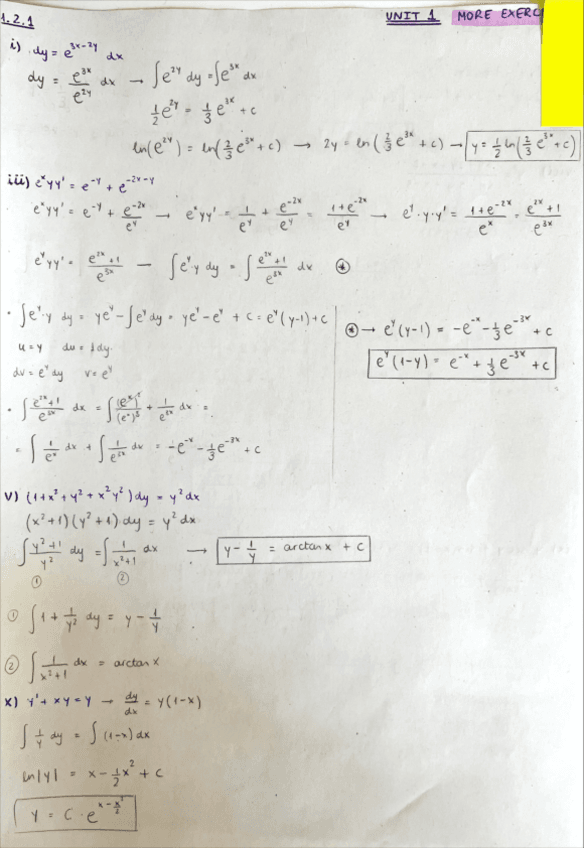 1.2.1 UNIT 1 MORE EXERC
i) dy = e^{3x-2y} dx
dy = e^{3x}/e^{2y} dx → ∫e^{2y} dy = ∫e^{3x} dx
1/2 e^{2y} = 1/3 e^{3x} + c
ln(e^{2y}) = ln(2/3 e^{3x} + c) → 2y = ln(2/3 e^{3x} + c) → y = 1/2 ln(2/3 e^{3x} + c)
iii) e^x yy' = e^{-y} + e^{-2x-y}
e^x yy' = e^{-y} + e^{-2x}/e^y → e^x yy' = 1/e^y + e^{-2x}/e^y = 1+e^{-2x}/e^y → e^y · y · y' = 1+e^{-2x}/e^x = e^{2x}+1/e^{3x}
e^y yy' = e^{2x}+1/e^{3x} — ∫e^y y dy = ∫ e^{2x}+1/e^{3x} dx ⊛
• ∫e^y · y dy = ye^y - ∫e^y dy = ye^y - e^y + c = e^y(y-1)+c
u = y du = 1dy
dv = e^y dy v = e^y
• ∫ e^{2x}+1/e^{3x} dx = ∫ (e^x)^2/(e^x)^3 + 1/e^{3x} dx =
= ∫ 1/e^x dx + ∫ 1/e^{3x} dx = -e^{-x} - 1/3 e^{-3x} + c
⊛ → e^y(y-1) = -e^{-x} - 1/3 e^{-3x} + c
e^y(1-y) = e^{-x} + 1/3 e^{-3x} + c
v) (1+x^2+y^2+x^2y^2)dy = y^2 dx
(x^2+1)(y^2+1)·dy = y^2 dx
∫ y^2+1/y^2 dy = ∫ 1/x^2+1 dx → y - 1/y = arctan x + c
① ②
① ∫ 1 + 1/y^2 dy = y - 1/y
② ∫ 1/x^2+1 dx = arctan x
x) y' + xy = y → dy/dx = y(1-x)
∫ 1/y dy = ∫ (1-x) dx
ln|y| = x - 1/2 x^2 + c
y = C · e^{x - x^2/2}